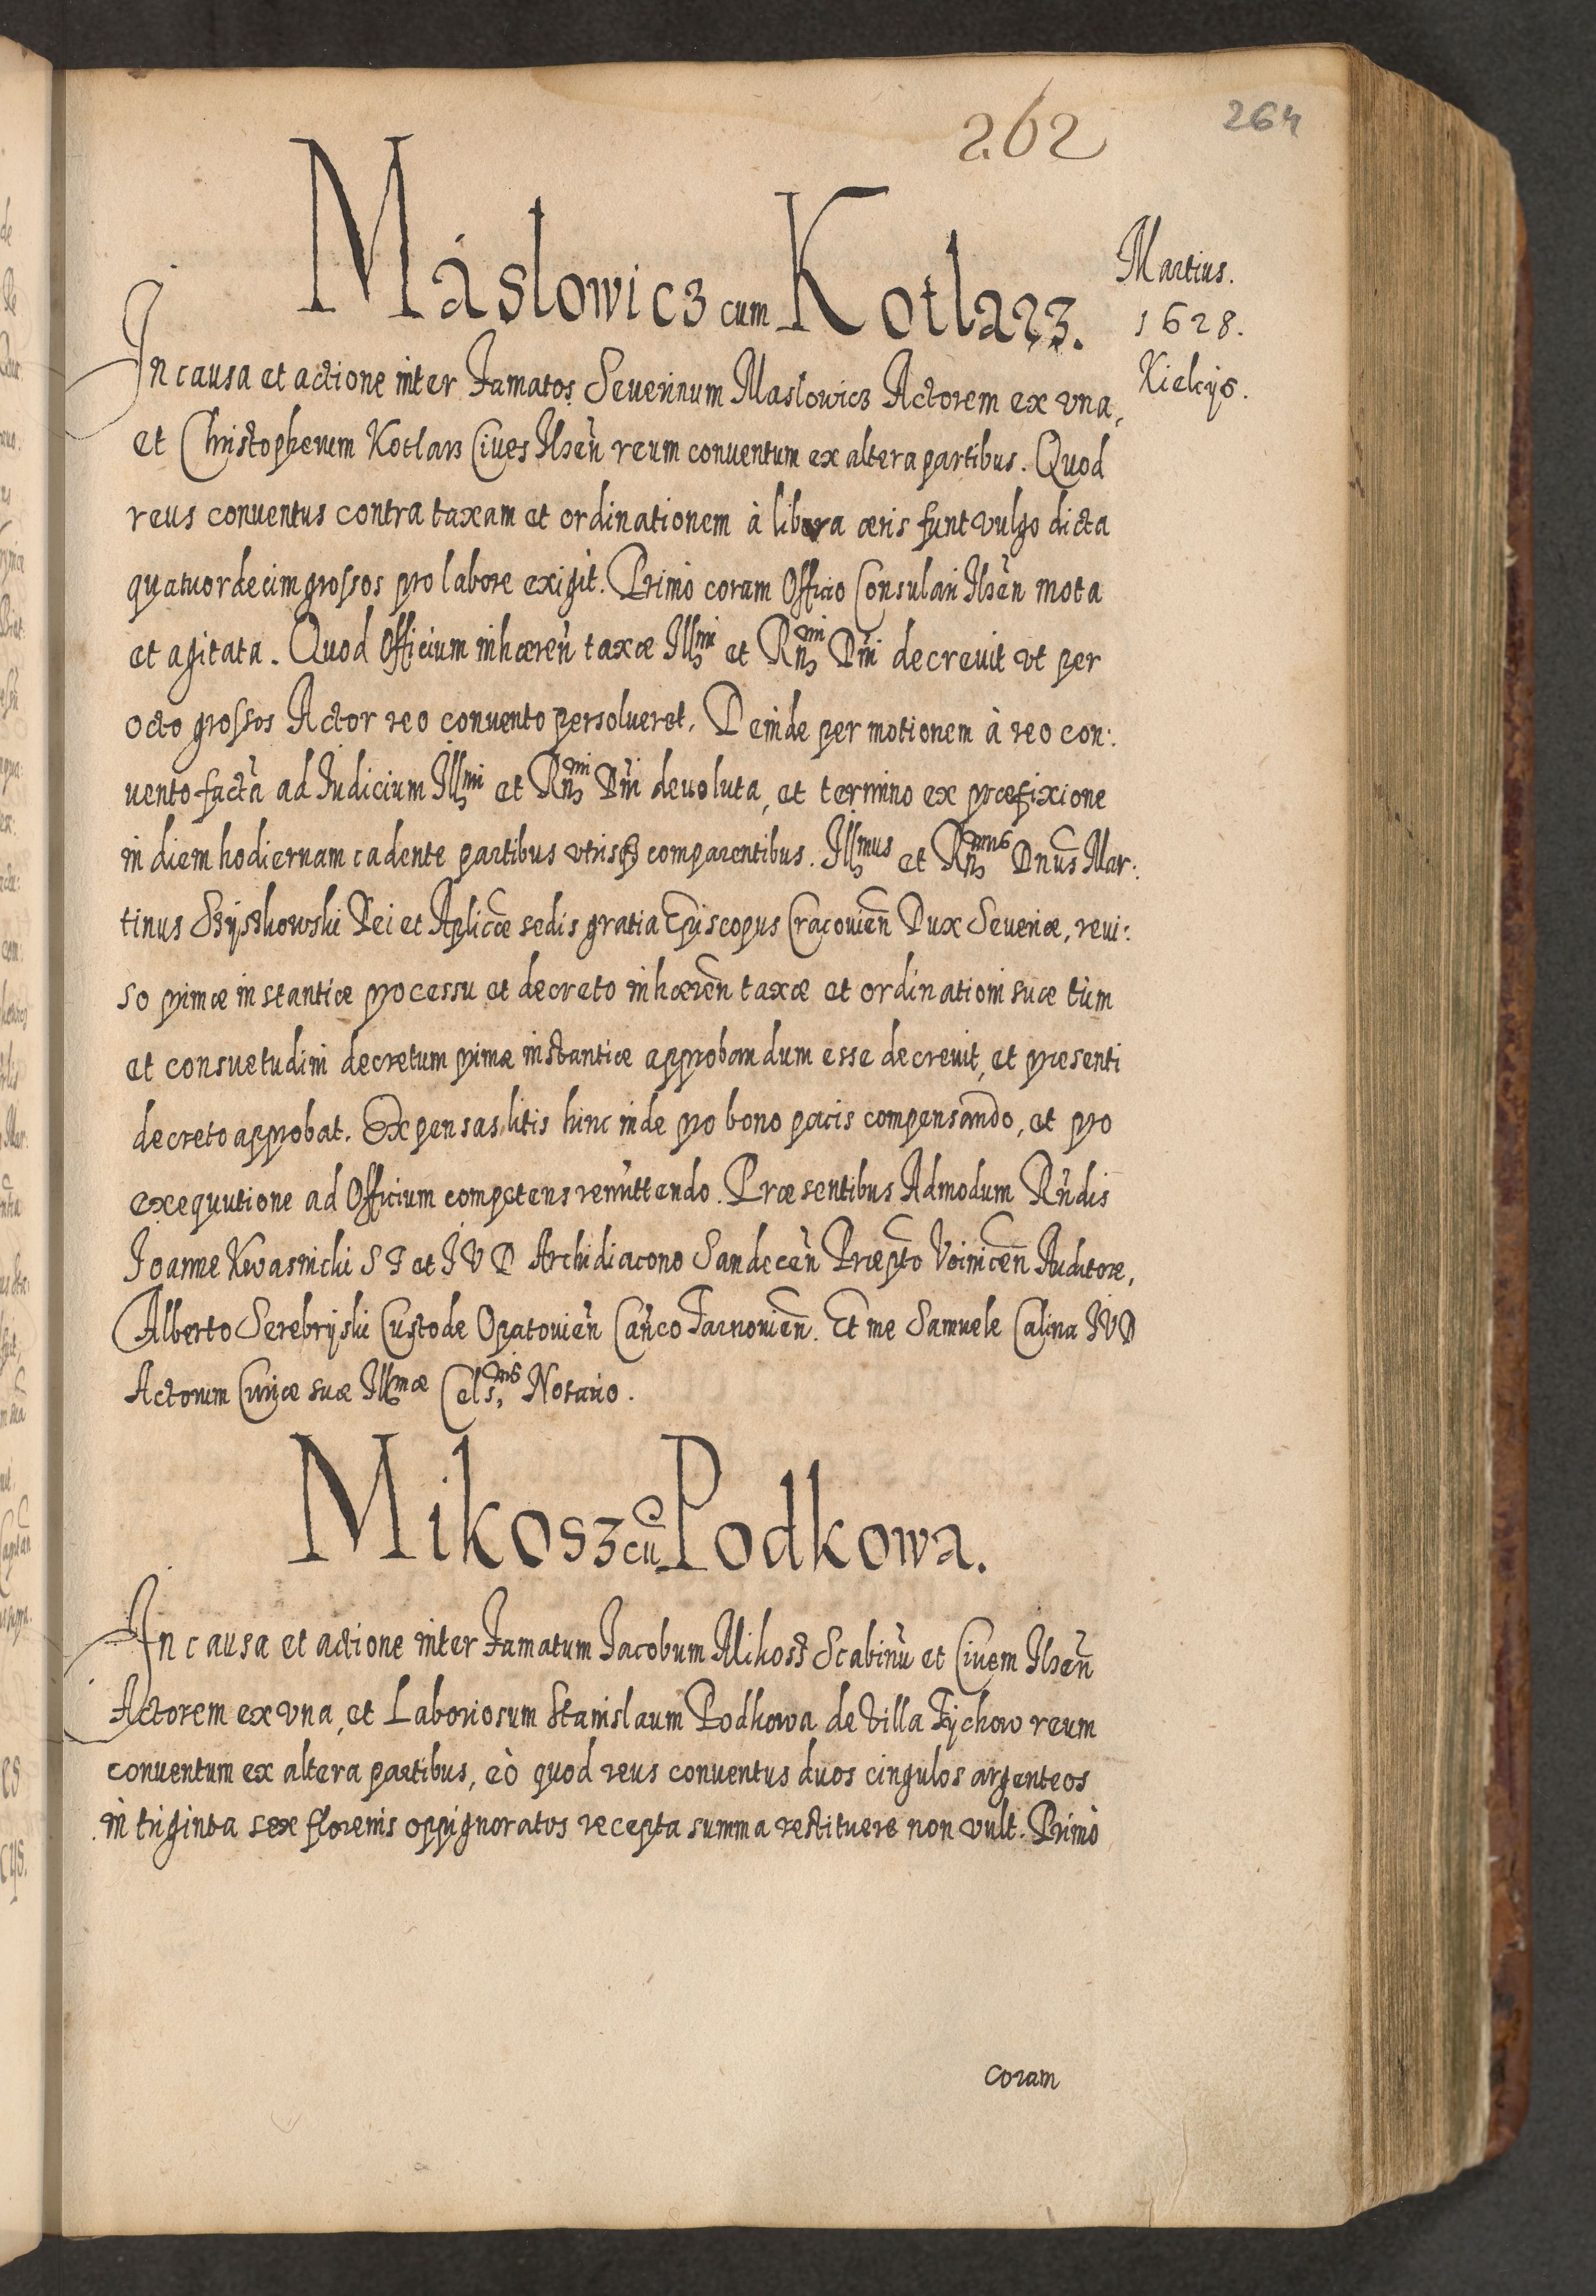 262
264
Máslowicz cum Kotlarz.
Martius.
1628.
Kielcijs.
In causa et actione inter Famatos Severinum Maslowicz Actorem ex vna,
et Christopherum Kotlarz Ciues Ilzen̄ reum conuentum ex altera partibus. Quod
reus conuentus contra taxam et ordinationem à libera æris funt vulgo dicta
quatuordecim grossos pro labore exigit. Primò coram Officio Consulari Ilzen̄ mota
et agitata. Quod Officium inhæren̄ taxæ Illmi et Rn̄mi Dn̄i decreuit vt per
octo grossos Actor reo conuento persolueret. Deinde per motionem à reo con:
uento factā ad Iudicium Illmi et Rn̄mi Dn̄i deuoluta, et termino ex præfixione
in diem hodiernam cadente partibus vtrisq3 comparentibus. Illmus et Rn̄mus Dnus̄ Mar:
tinus Szyszkowski Dei et Aplicǣ sedis gratia Episcopus Cracouien̄ Dux Seueriæ, reui:
so primæ instantiæ processu et decreto inhæren̄ taxæ et ordinationi suæ tùm
et consuetudini decretum primæ instantiæ approbandum esse decreuit, et presenti
decreto approbat. Expensas litis hinc inde pro bono pacis compensando, et pro
exequutione ad Officium competens remittendo. Præsentibus Admodum Rn̄dis
Joanne Kwasnicki S T et I V D Archidiacono Sandecen̄ Præpto̅ Voinicen̄ Auditore,
Alberto Serebryski Custode Opatouien̄ Can̄co Tarnouien̄. Et me Samuele Calina I V D
Actorum Curiæ suæ Illmæ Cels.nis Notario.
Mikosz cū Podkowa.
In causa et actione inter Famatum Jacobum Mikosz Scabinū et Ciuem Ilzen̄
Actorem ex vna, et Laboriosum Stanislaum Podkowa de Villa Tychow reum
conuentum ex altera partibus, eò quod reus conuentus duos cingulos argenteos
in triginta sex florenis oppignoratos recepta summa restituere non vult. Primò
coram